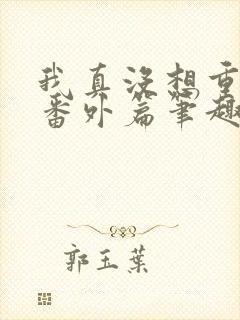 我真没想重
番外篇笔趣
郭玉葉